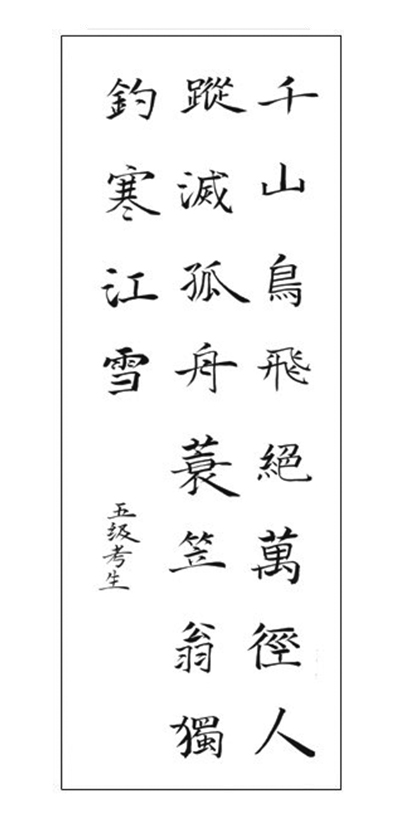 千山鳥飛絕萬徑人
蹤滅孤舟蓑笠翁獨
釣寒江雪
五级考生